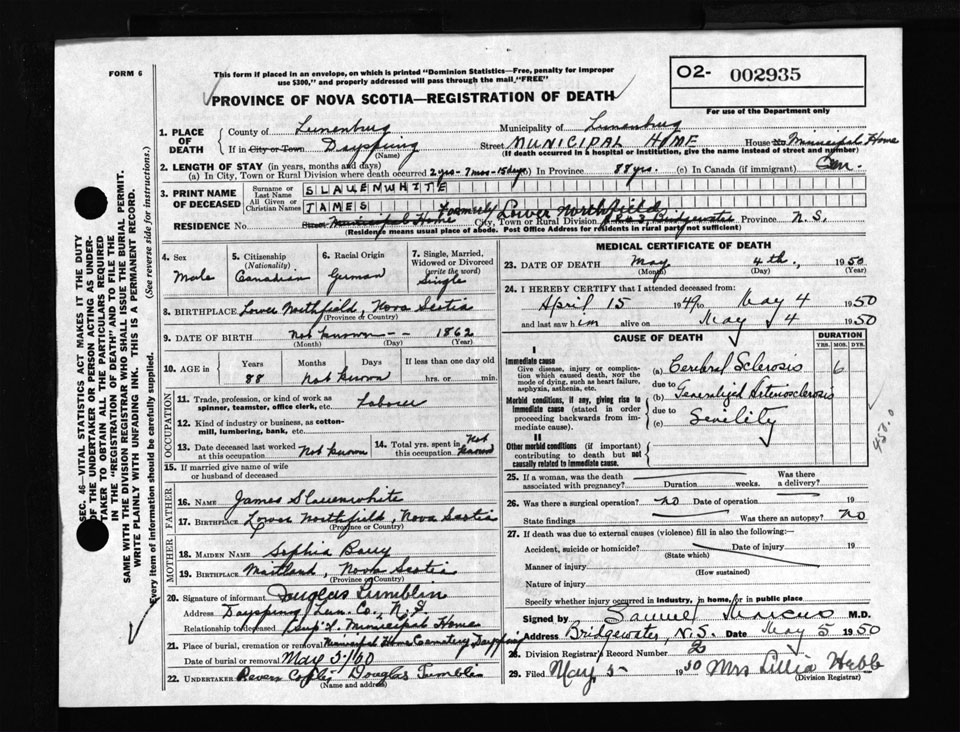 FORM 6
This form if placed in an envelope, on which is printed "Dominion Statistics—Free, penalty for improper
use $300," and properly addressed will pass through the mail, "FREE"
PROVINCE OF NOVA SCOTIA—REGISTRATION OF DEATH
O2- 002935
For use of the Department only
1. PLACE OF DEATH
County of Lunenburg Municipality of Lunenburg
If in City or Town Dayspring Street MUNICIPAL HOME House No. Municipal Home
(Name) (If death occurred in a hospital or institution, give the name instead of street and number)
2. LENGTH OF STAY (in years, months and days)
(a) In City, Town or Rural Division where death occurred 2 yrs - 7 mos - 15 days (b) In Province 88 yrs. (c) In Canada (if immigrant)
3. PRINT NAME OF DECEASED
Surname or Last Name SLAUENWHITE
All Given or Christian Names JAMES
RESIDENCE No. Street Municipal Home Formerly Lower Northfield
City, Town or Rural Division Bridgewater Province N.S.
(Residence means usual place of abode. Post Office Address for residents in rural parts not sufficient)
4. Sex
Male
5. Citizenship
(Nationality)
Canadian
6. Racial Origin
German
7. Single, Married,
Widowed or Divorced
(write the word)
Single
8. BIRTHPLACE Lower Northfield, Nova Scotia
(Province or Country)
9. DATE OF BIRTH Not Known -- 1862
(Month) (Day) (Year)
10. AGE in Years Months Days If less than one day old
88 Not Known hrs. or min.
OCCUPATION
11. Trade, profession, or kind of work as
spinner, teamster, office clerk, etc. Laborer
12. Kind of industry or business, as cotton-
mill, lumbering, bank, etc.
13. Date deceased last worked
at this occupation Not Known
14. Total yrs. spent in
this occupation Not Known
15. If married give name of wife
or husband of deceased
FATHER
16. NAME James Slauenwhite
17. BIRTHPLACE Lower Northfield, Nova Scotia
(Province or Country)
MOTHER
18. MAIDEN NAME Sophia
19. BIRTHPLACE Maitland, Nova Scotia
(Province or Country)
20. Signature of informant Douglas
Address Dayspring Lun. Co., N.S.
Relationship to deceased Sup't. Municipal Home
21. Place of burial, cremation or removal Municipal Home Cemetery, Dayspring
Date of burial or removal May 5/60
22. UNDERTAKER Douglas
(Name and address)
MEDICAL CERTIFICATE OF DEATH
23. DATE OF DEATH May 4th., 1950
(Month) (Day) (Year)
24. I HEREBY CERTIFY that I attended deceased from:
April 15 1949 to May 4 1950
and last saw him alive on May 4 1950
CAUSE OF DEATH
DURATION
YRS. MOS. DYS.
I
Immediate cause
Give disease, injury or complica-
tion which caused death, nor the
mode of dying, such as heart failure,
asphyxia, asthenia, etc.
(a) Cerebral Sclerosis 6
due to
Morbid conditions, if any, giving rise to
immediate cause (stated in order
proceeding backwards from im-
mediate cause).
(b) Generalized Arteriosclerosis
due to
(c) Senility
450.0
II
Other morbid conditions (if important)
contributing to death but not
causally related to immediate cause.
25. If a woman, was the death
associated with pregnancy? Duration weeks. Was there
a delivery?
26. Was there a surgical operation? No Date of operation 19
State findings Was there an autopsy? No
27. If death was due to external causes (violence) fill in also the following:—
Accident, suicide or homicide? Date of injury 19
(State which)
Manner of injury
(How sustained)
Nature of injury
Specify whether injury occurred in industry, in home, or in public place
Signed by Samuel Marcus M.D.
Address Bridgewater, N.S. Date May 5 1950
28. Division Registrar's Record Number
29. Filed May 5 1950 Mrs Lillia Hebb
(Division Registrar)
SEC. 46—VITAL STATISTICS ACT MAKES IT THE DUTY
OF THE UNDERTAKER OR PERSON ACTING AS UNDER-
TAKER TO OBTAIN ALL THE PARTICULARS REQUIRED
IN THE "REGISTRATION OF DEATH" AND TO FILE THE
SAME WITH THE DIVISION REGISTRAR WHO SHALL ISSUE THE BURIAL PERMIT.
WRITE PLAINLY WITH UNFADING INK. THIS IS A PERMANENT RECORD.
Every item of information should be carefully supplied. (See reverse side for instructions.)